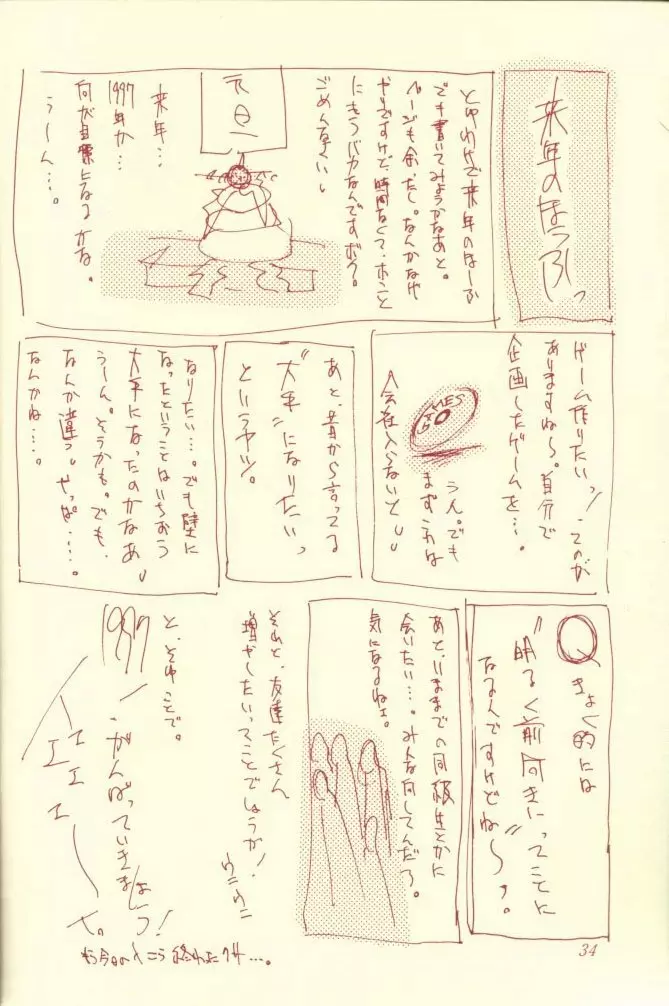 来年のほうふっ
とゆわけで来年のほーふ
でも書いてみようかなあと。
ページも余ったし。なんかなげ
やりですけど、時間なくて、ホント
にもうバカなんですボク。
ごめんなさいし
元旦
来年…
1997年か…
何が目標になるかな。
うーん…。
ゲーム作りたいっ!てのが
ありますね〜。自分で
企画したゲームを…。
GAMES
うん。でも
まずこれは
会社入らないとし
あと、昔から言ってる
"大手"になりたいっ
というヤツ。
なりたい…。でも壁に
なったということはいちおう
大手になったのかなあし
うーん。そうかも。でも、
なんか違うし やっぱ……。
なんかね……。
Qきょく的には
"明るく前向きに"ってことに
なるんですけどね〜っ。
あと、いままでの同級生とかに
会いたい…。みんな何してんだろ。
気になるねェ。
それと、友達たくさん
増やしたいってことでしょうが!
ウニウニ
と、そゆことで。
1997
がんばっていきましょっ!
エエエ
34